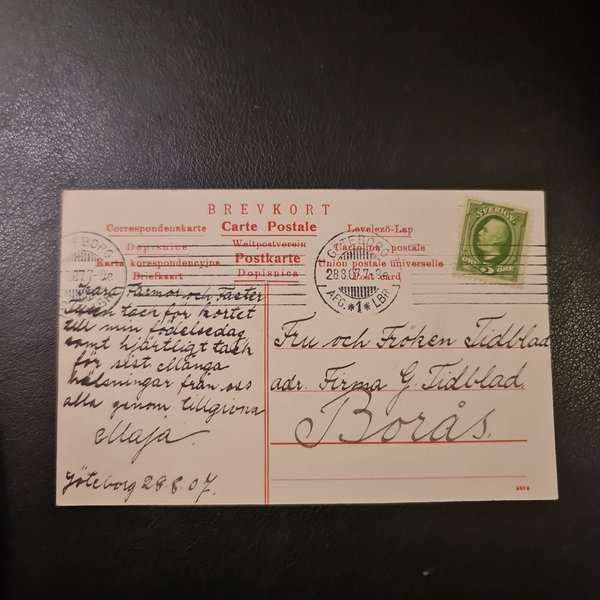 BREVKORT
Correspondenzkarte Carte Postale Levelező-Lap
Dopisnice Weltpostverein Cartolina postale
Karta korespondencyjna Postkarte Union postale universelle
Briefkaart Dopisnica Post card
GÖTEBORG
28.8.07.7-9a
AFG. *1* LBR.
SVERIGE
5 ÖRE
Kära Farmor och Faster
tack för kortet
till min födelsedag
samt hjärtligt tack
för sist Många
hälsningar från oss
alla genom tillgivna
Maja.
Göteborg 28.8.07.
Fru och Fröken Tidblad
adr. Firma G. Tidblad.
Borås.